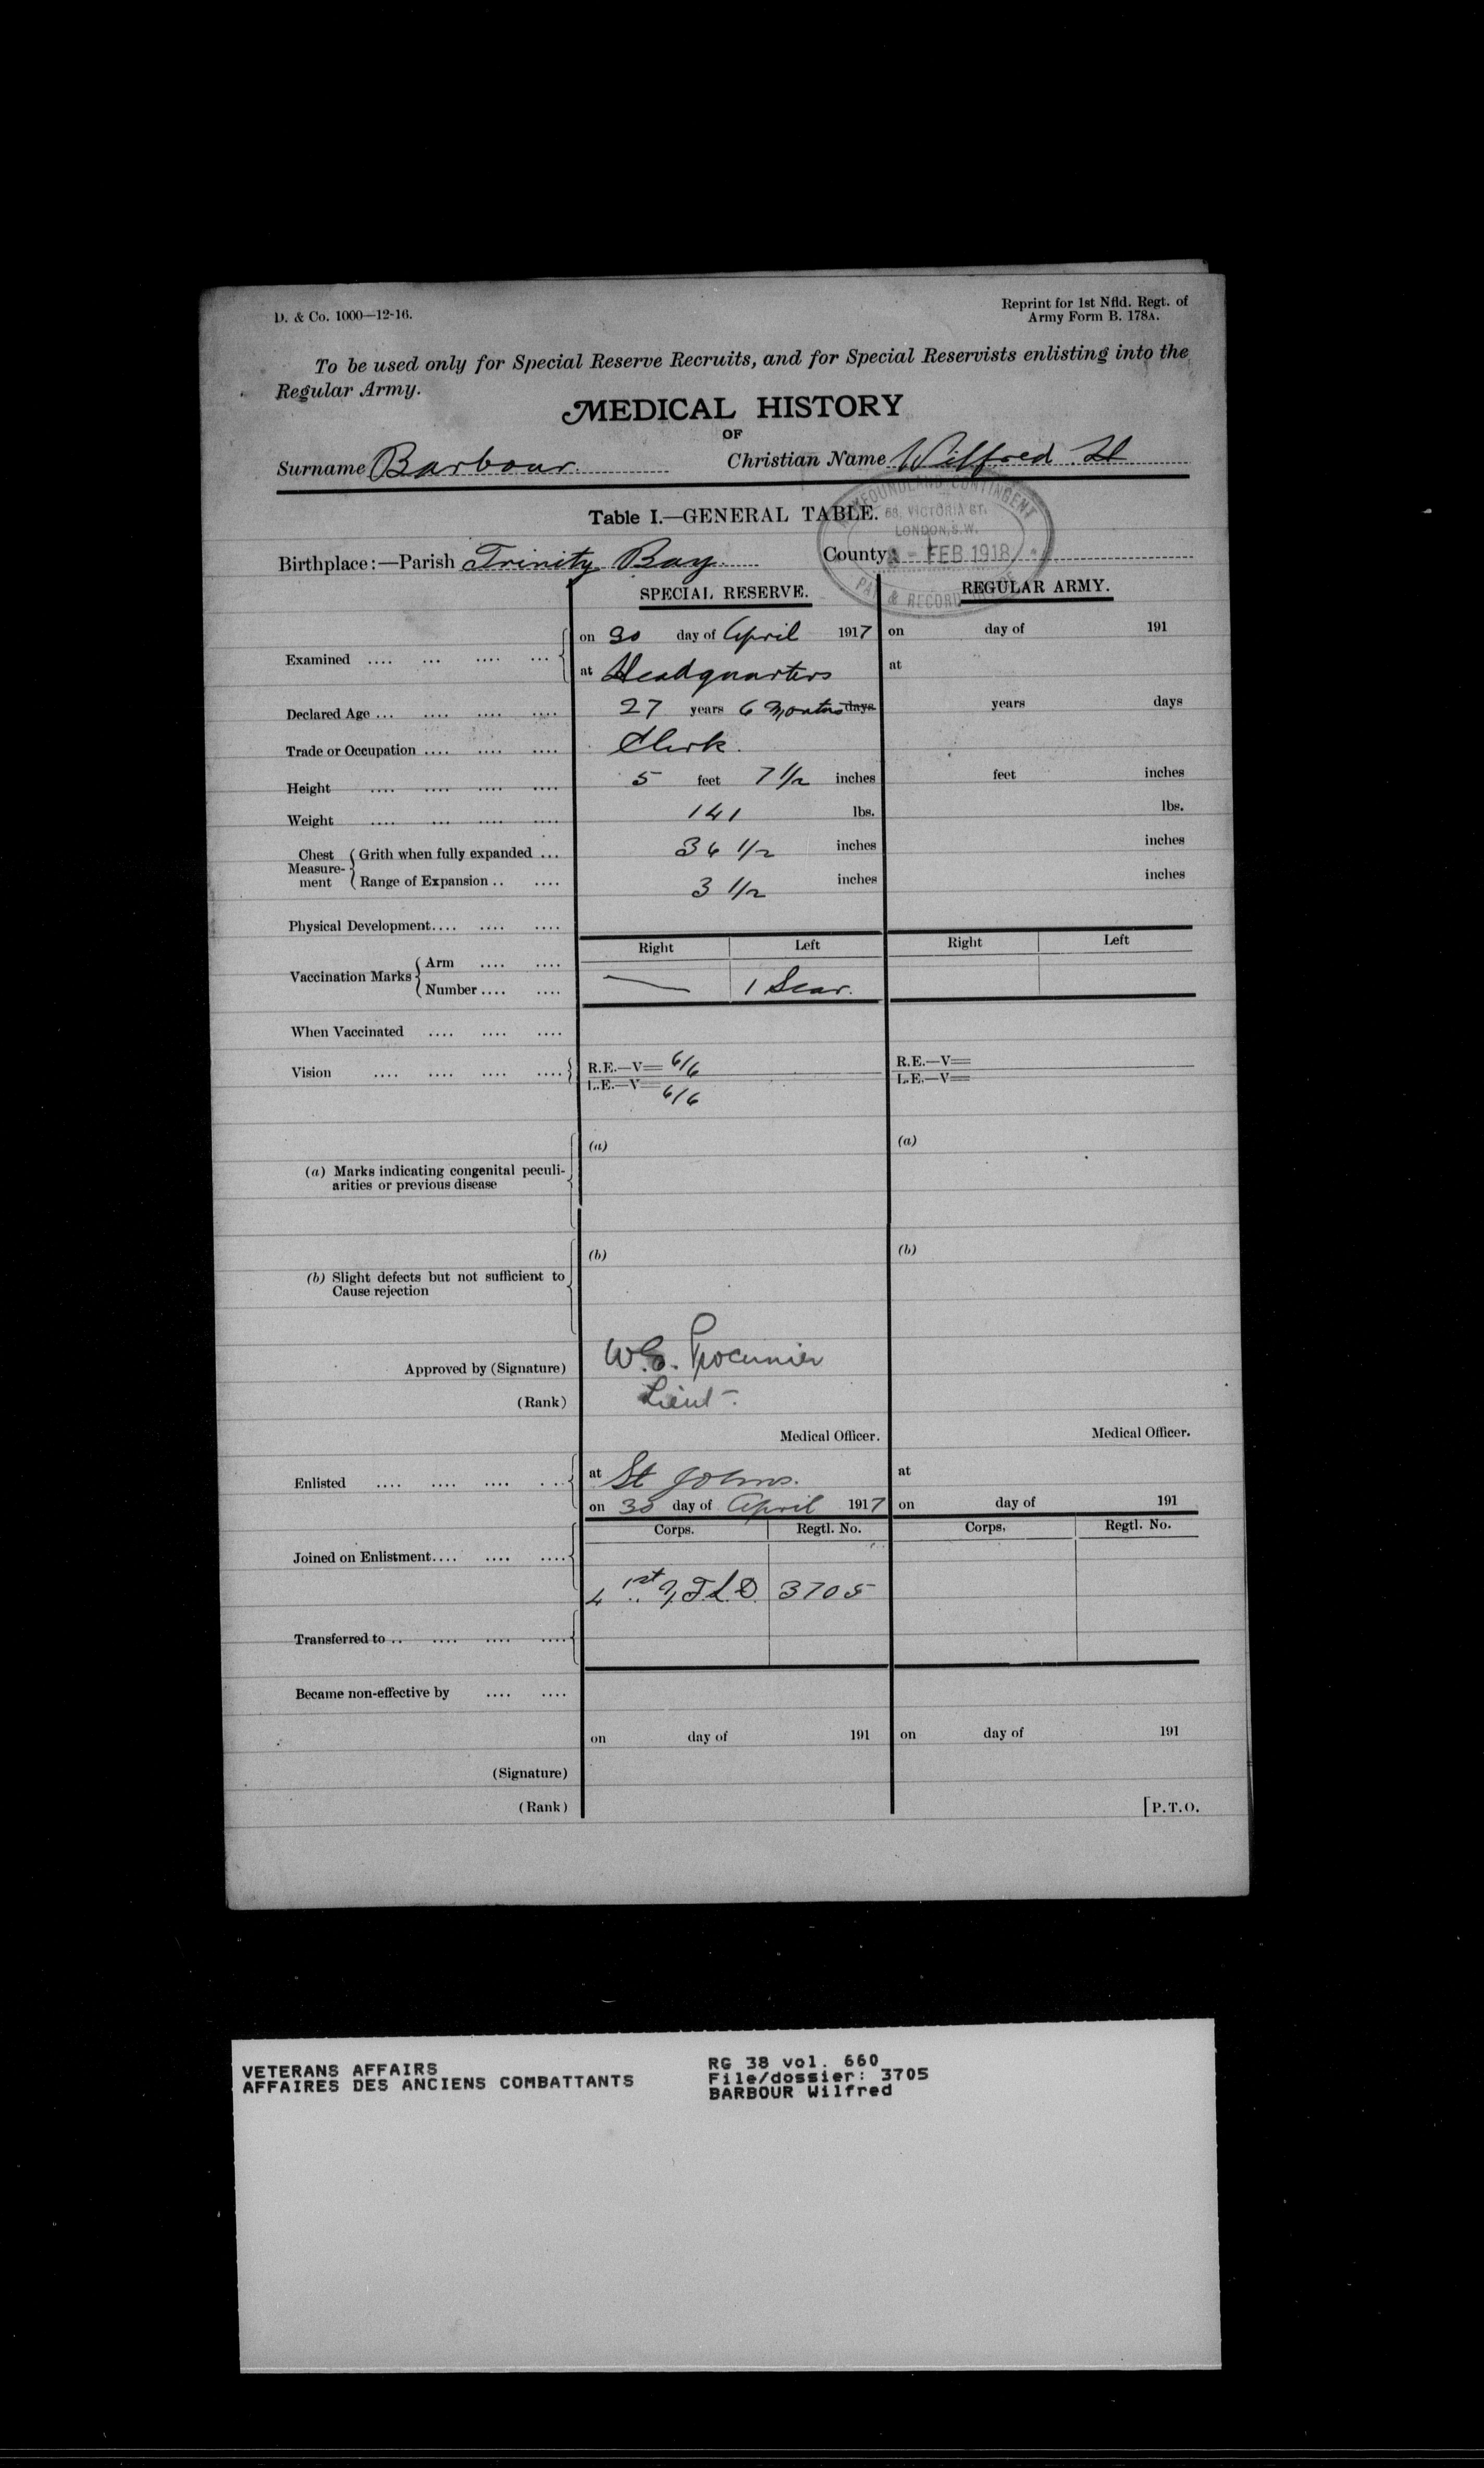 D. & Co. 1000—12-16.
Reprint for 1st Nfld. Regt. of
Army Form B. 178A.
To be used only for Special Reserve Recruits, and for Special Reservists enlisting into the
Regular Army.
MEDICAL HISTORY
OF
Surname Barbour. Christian Name Wilfred H
NEWFOUNDLAND CONTINGENT
58, VICTORIA ST.
LONDON, S.W.
FEB 1918
PAY & RECORD OFFICE
Table I.—GENERAL TABLE.
Birthplace:—Parish Trinity Bay. County
SPECIAL RESERVE. REGULAR ARMY.
Examined .... ... .... ... on 30 day of April 1917 on day of 191
at Headquarters at
Declared Age ... .... .... .... 27 years 6 months days years days
Trade or Occupation .... .... .... Clerk.
Height .... .... .... .... 5 feet 7 1/2 inches feet inches
Weight .... ... .... .... 141 lbs. lbs.
Chest Measurement Grith when fully expanded ... 36 1/2 inches inches
Range of Expansion .. .... 3 1/2 inches inches
Physical Development.... .... ....
Right Left Right Left
Vaccination Marks Arm .... ....
Number .... .... — 1 Scar.
When Vaccinated .... .... ....
Vision .... .... .... .... R.E.—V= 6/6 R.E.—V=
L.E.—V= 6/6 L.E.—V=
(a) (a)
(a) Marks indicating congenital peculi-
arities or previous disease
(b) (b)
(b) Slight defects but not sufficient to
Cause rejection
Approved by (Signature) W.E. Procunier
(Rank) Lieut-.
Medical Officer. Medical Officer.
Enlisted .... .... .... ... at St Johns. at
on 30 day of April 1917 on day of 191
Corps. Regtl. No. Corps. Regtl. No.
Joined on Enlistment.... .... ....
1st 3705
Transferred to .. .... .... ....
Became non-effective by .... ....
on day of 191 on day of 191
(Signature)
(Rank)
[P.T.O.
VETERANS AFFAIRS
AFFAIRES DES ANCIENS COMBATTANTS
RG 38 vol. 660
File/dossier: 3705
BARBOUR Wilfred